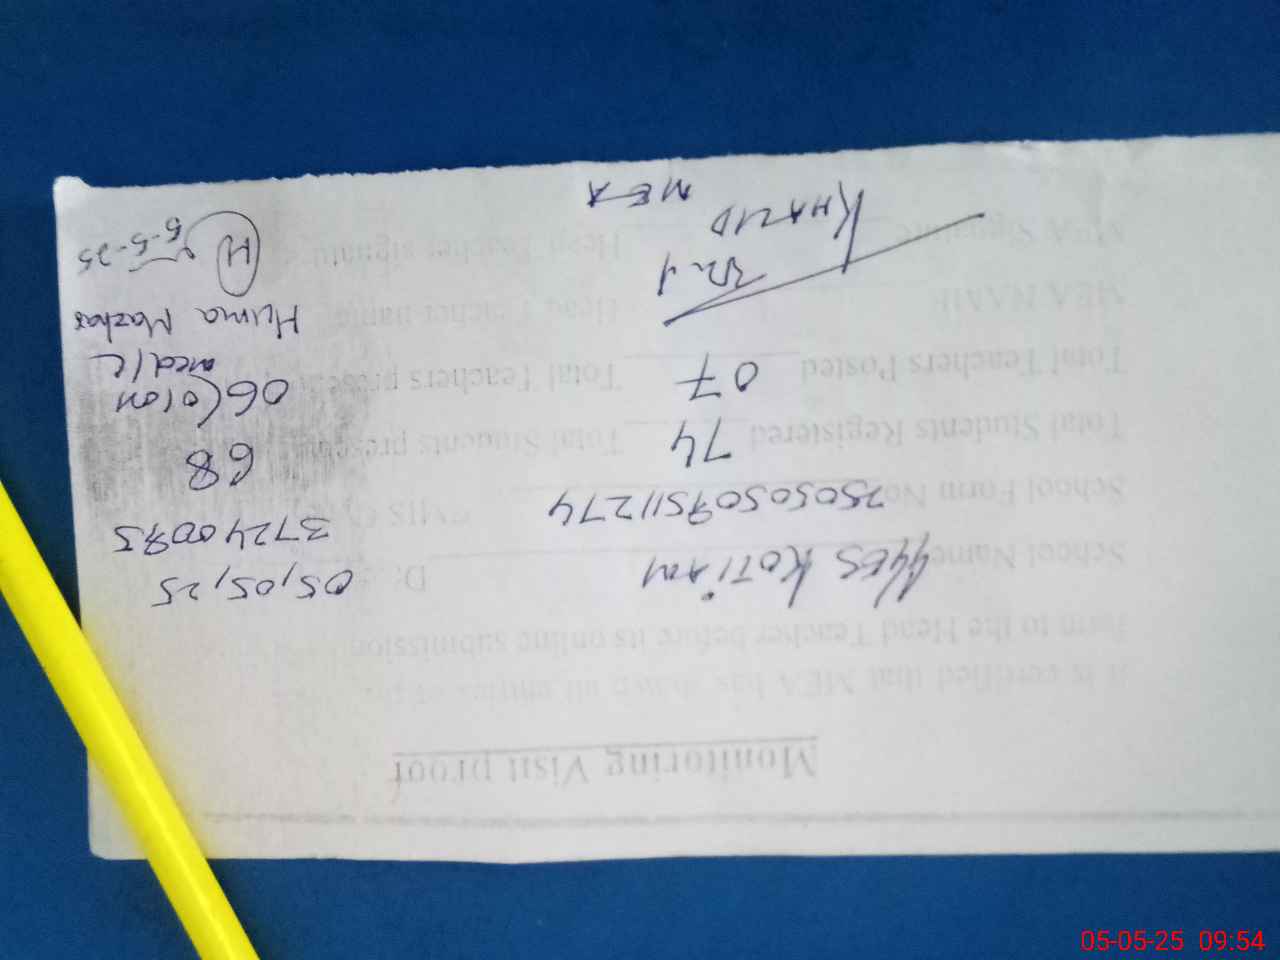 Monitoring Visit proof
It is certified that MEA has shown all entries of
Form to the Head Teacher before its online submission
School Name GGES KOTIAM D: 05,05,25
School Form No 25050507511274 37240073
Total Students Registered 74 Total Students present 68
Total Teachers Posted 07 Total Teachers present 06 (01 on
med/L
MEA NAME Head Teacher name Huma Mazhar
MEA Signature KHALID Head Teacher signature H 5-5-25
MEA
05-05-25 09:54